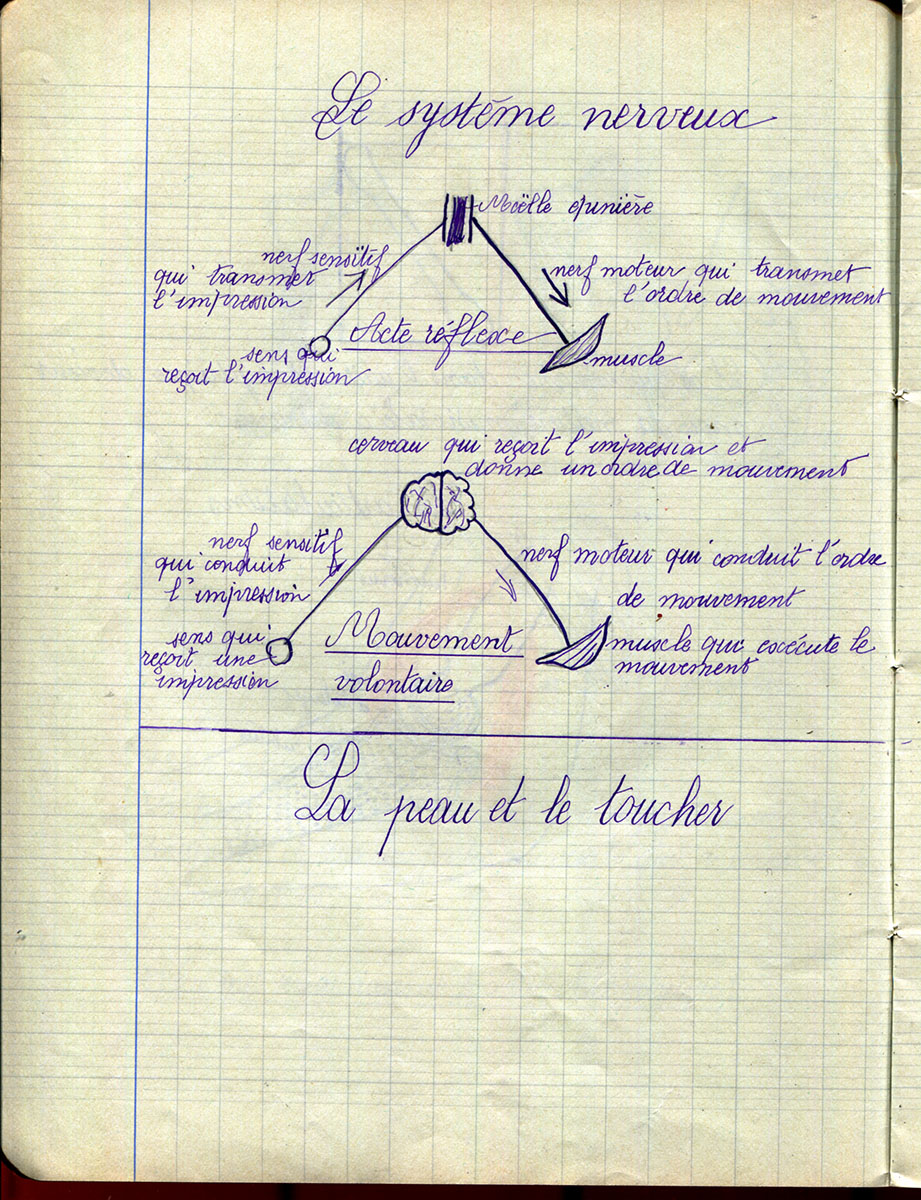 Le système nerveux
Moëlle épinière
nerf sensitif
qui transmet
l'impression
nerf moteur qui transmet
l'ordre de mouvement
Acte réflexe
sens qui
reçoit l'impression
muscle
cerveau qui reçoit l'impression et
donne un ordre de mouvement
nerf sensitif
qui conduit
l'impression
nerf moteur qui conduit l'ordre
de mouvement
sens qui
reçoit une
impression
Mouvement
volontaire
muscle qui exécute le
mouvement
La peau et le toucher